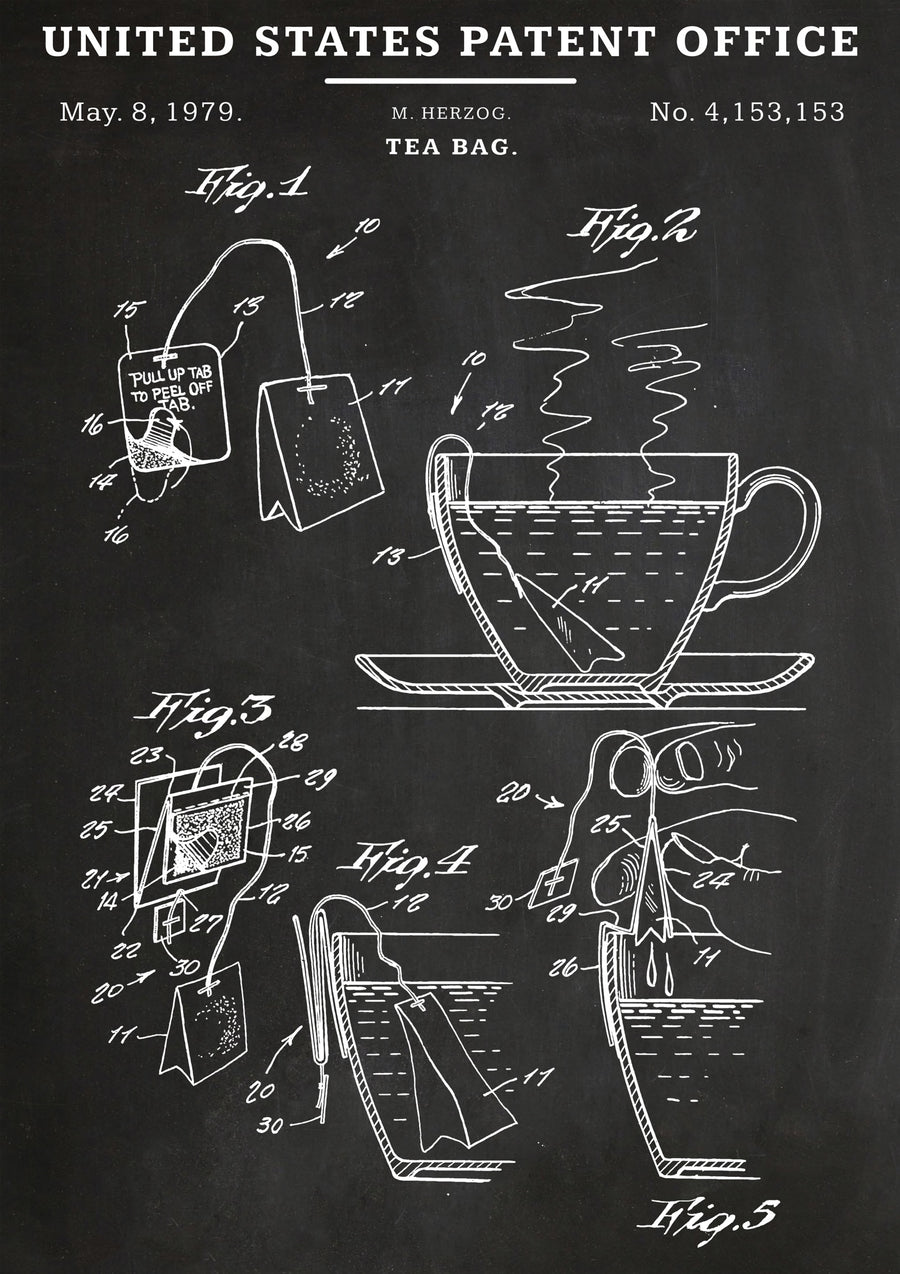 UNITED STATES PATENT OFFICE
May. 8, 1979.
M. HERZOG.
No. 4,153,153
TEA BAG.
Fig.1
10
15
13
12
PULL UP TAB
TO PEEL OFF
TAB.
11
16
14
16
Fig.2
10
12
13
11
Fig.3
23
28
24
29
25
26
15
21
14
12
27
22
30
20
11
Fig.4
12
20
30
11
20
25
24
30
29
26
11
Fig.5